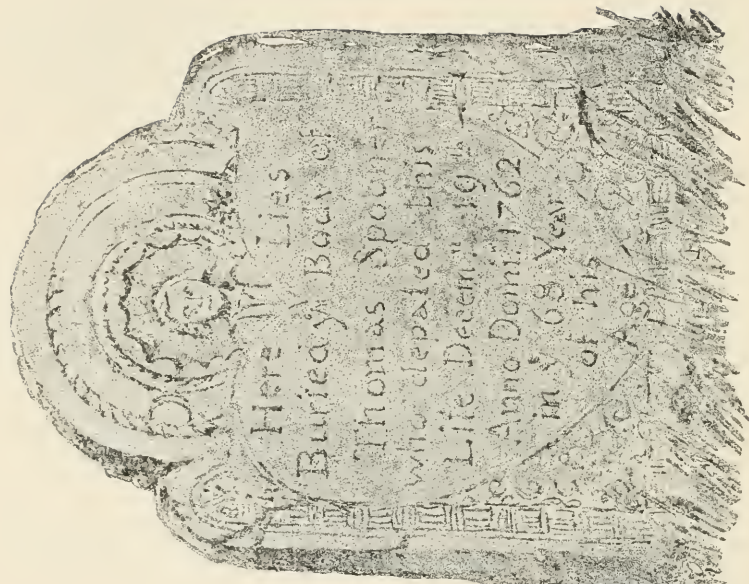 Here Lies
Buried yᵉ Body of
Thomas Spooner
who depated this
Life Decemʳ 19ᵗʰ
Anno Domi. 1762
in yᵉ 68 Year
of his
Age